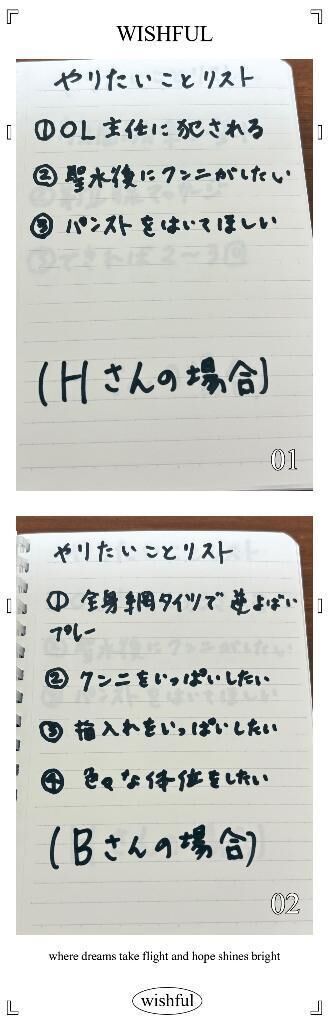 WISHFUL
やりたいことリスト
①OL主任に犯される
②聖水後にクンニがしたい
③パンストをはいてほしい
(Hさんの場合)
01
やりたいことリスト
①全身網タイツで逆よばい
プレー
②クンニをいっぱいしたい
③指入れをいっぱいしたい
④色々な体位をしたい
(Bさんの場合)
02
where dreams take flight and hope shines bright
wishful